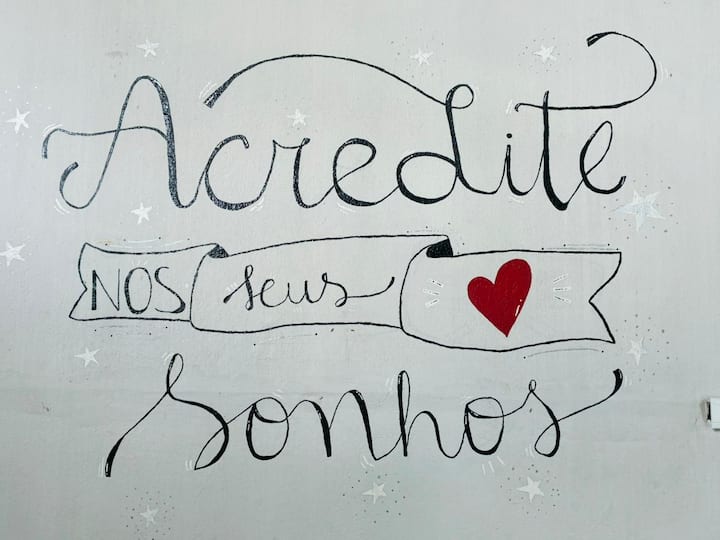 Acredite
NOS seus
Sonhos